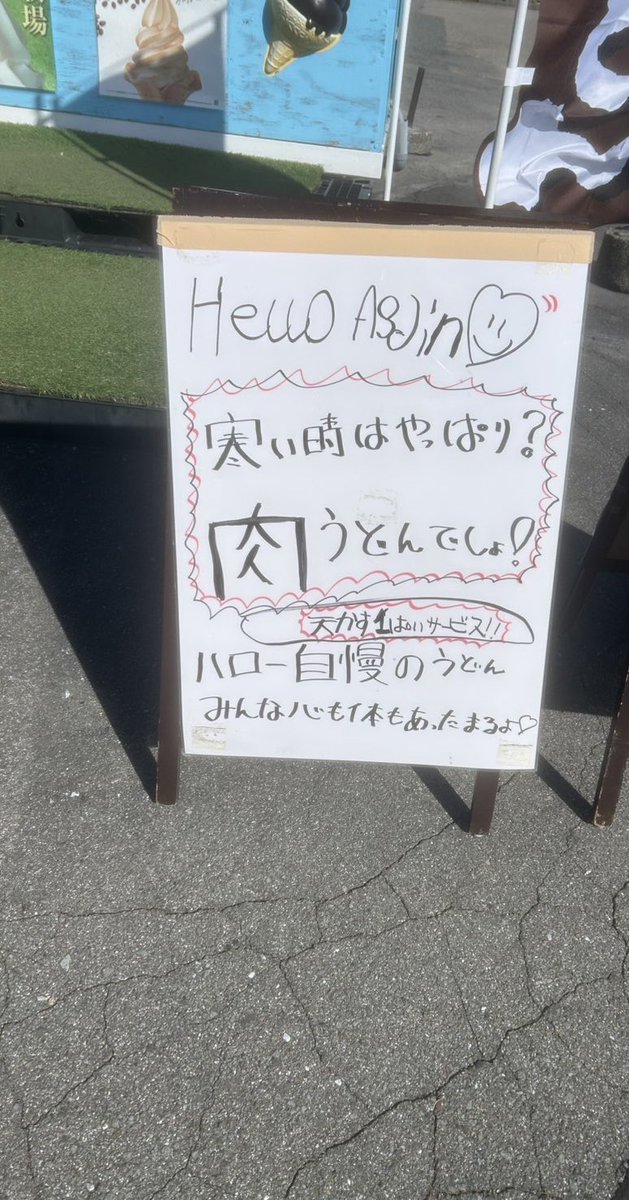 場
Hello Again
寒い時はやっぱり?
肉うどんでしょ!
天かす1ぱいサービス!!
ハロー自慢のうどん
みんな心も体もあったまるよ♡